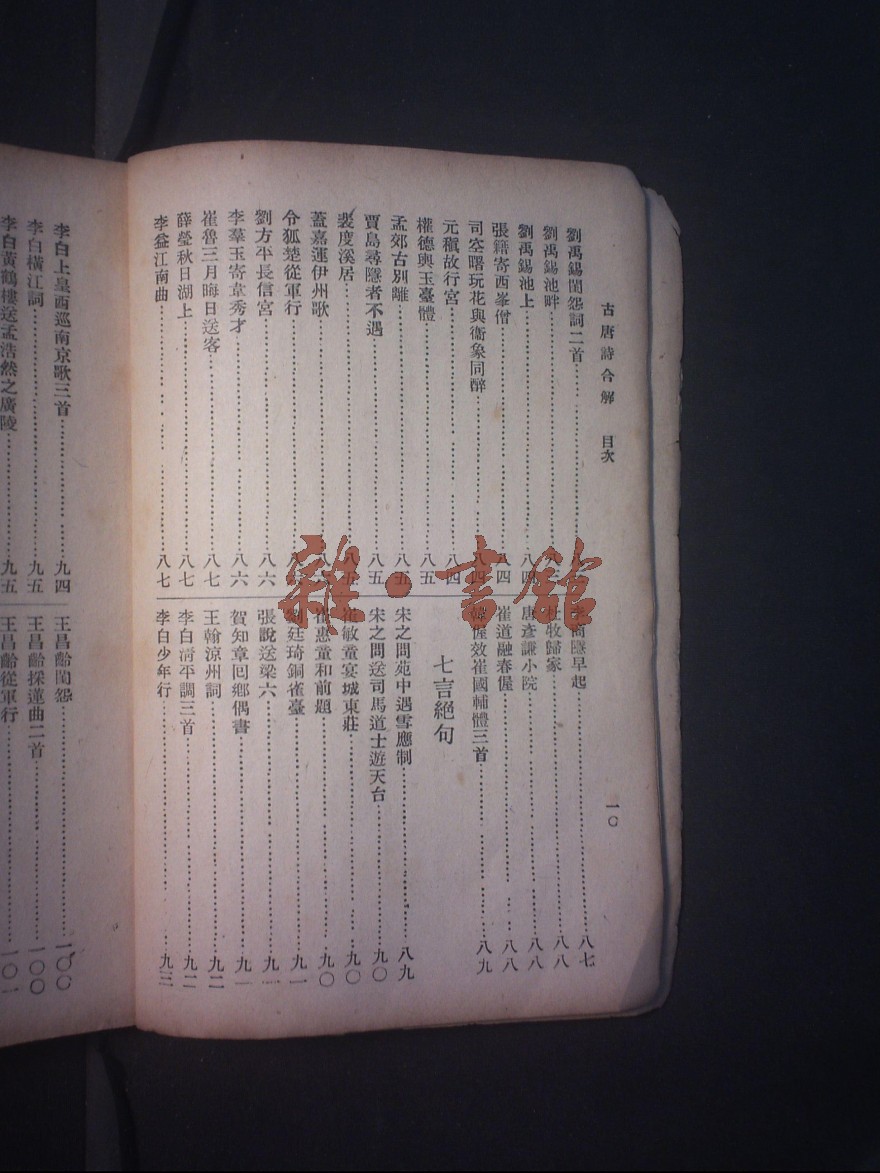 古唐詩合解 目次
一〇
劉禹錫閨怨詞二首
劉禹錫池畔
劉禹錫池上……八四
張籍寄西峯僧……八四
司空曙玩花與衞象同醉……八四
元稹故行宮……八四
權德輿玉臺體……八五
孟郊古別離……八五
賈島尋隱者不遇……八五
裴度溪居……八五
蓋嘉運伊州歌
令狐楚從軍行
劉方平長信宮……八六
李羣玉寄韋秀才……八六
崔魯三月晦日送客……八七
薛瑩秋日湖上……八七
李益江南曲……八七
李商隱早起……八七
杜牧歸家……八八
唐彥謙小院……八八
崔道融春偓……八八
韓偓效崔國輔體三首……八九
七言絕句
宋之問苑中遇雪應制……八九
宋之問送司馬道士遊天台……九〇
崔敏童宴城東莊……九〇
崔惠童和前題……九〇
劉廷琦銅雀臺……九一
張說送梁六……九一
賀知章回鄉偶書……九一
王翰涼州詞……九二
李白清平調三首……九二
李白少年行……九三
李白上皇西巡南京歌三首……九四
李白橫江詞……九五
李白黃鶴樓送孟浩然之廣陵……九五
王昌齡閨怨……一〇〇
王昌齡採蓮曲二首……一〇〇
王昌齡從軍行……一〇一
雜·書館